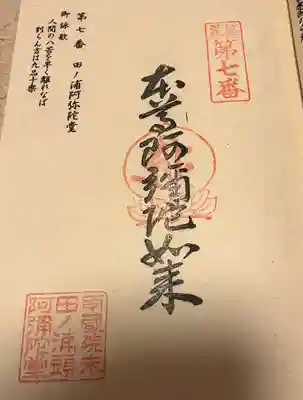 第七番　田ノ浦阿弥陀堂
御詠歌
人間の八苦を早く離れなば
到らん方は九品十楽
第七番
本尊阿彌陀如来
田ノ浦
阿彌陀堂